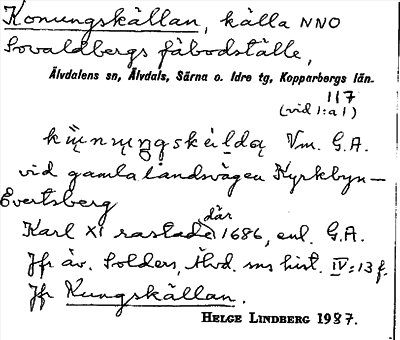 Konungskällan, källa NNO
Lovaldbergs fäbodställe,
Älvdalens sn, Älvdals, Särna o. Idre tg, Kopparbergs län.
117
(vid 1:a 1)
Vm. G.A.
vid gamla landsvägen Kyrkbyn—
Evertsberg
där
Karl XI rastade 1686, enl. G.A.
Jfr äv. Solders, Älvd. sns hist. IV:13 f.
Jfr Kungskällan.
HELGE LINDBERG 1937.